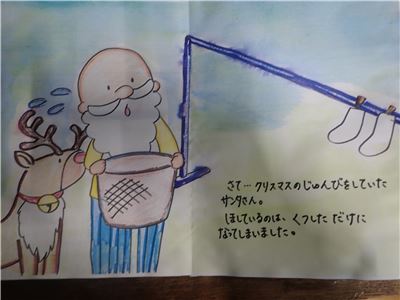 さて…クリスマスのじゅんびをしていた
サンタさん。
ほしているのは、くつした だけに
なってしまいました。